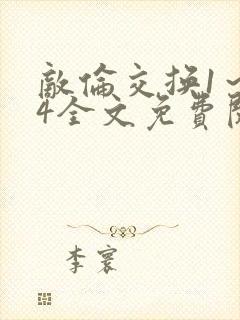 敵倫交換1~
4全文免費閱
李寰